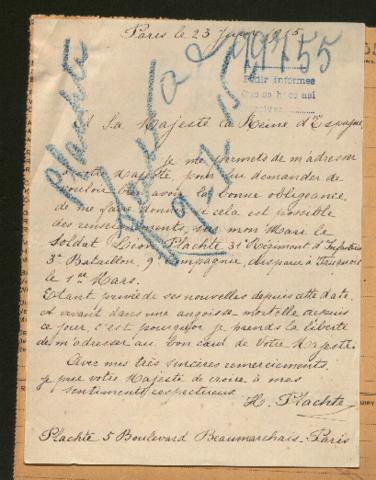 Paris le 23 1915
99755
Plachte
Pedir informes
A Sa Majesté la Reine d'Espagne
je me permets de m'adresser
à votre Majesté pour lui demander de
vouloir bien avoir la bonne obligeance
de me faire donner si cela est possible
des renseignements, sur mon Mari le
Soldat Léon Plachte 31e Régiment d'Infanterie
3e Bataillon, 9e Compagnie, disparu à Vauquois
le 1er Mars.
Etant privée de ses nouvelles depuis cette date
et vivant dans une angoisse mortelle depuis
ce jour, c'est pourquoi je prends la liberté
de m'adresser au bon cœur de Votre Majesté.
Avec mes très sincères remerciements
je prie votre Majesté de croire à mes
sentiments respectueux
H. Plachte
Plachte 5 Boulevard Beaumarchais. Paris